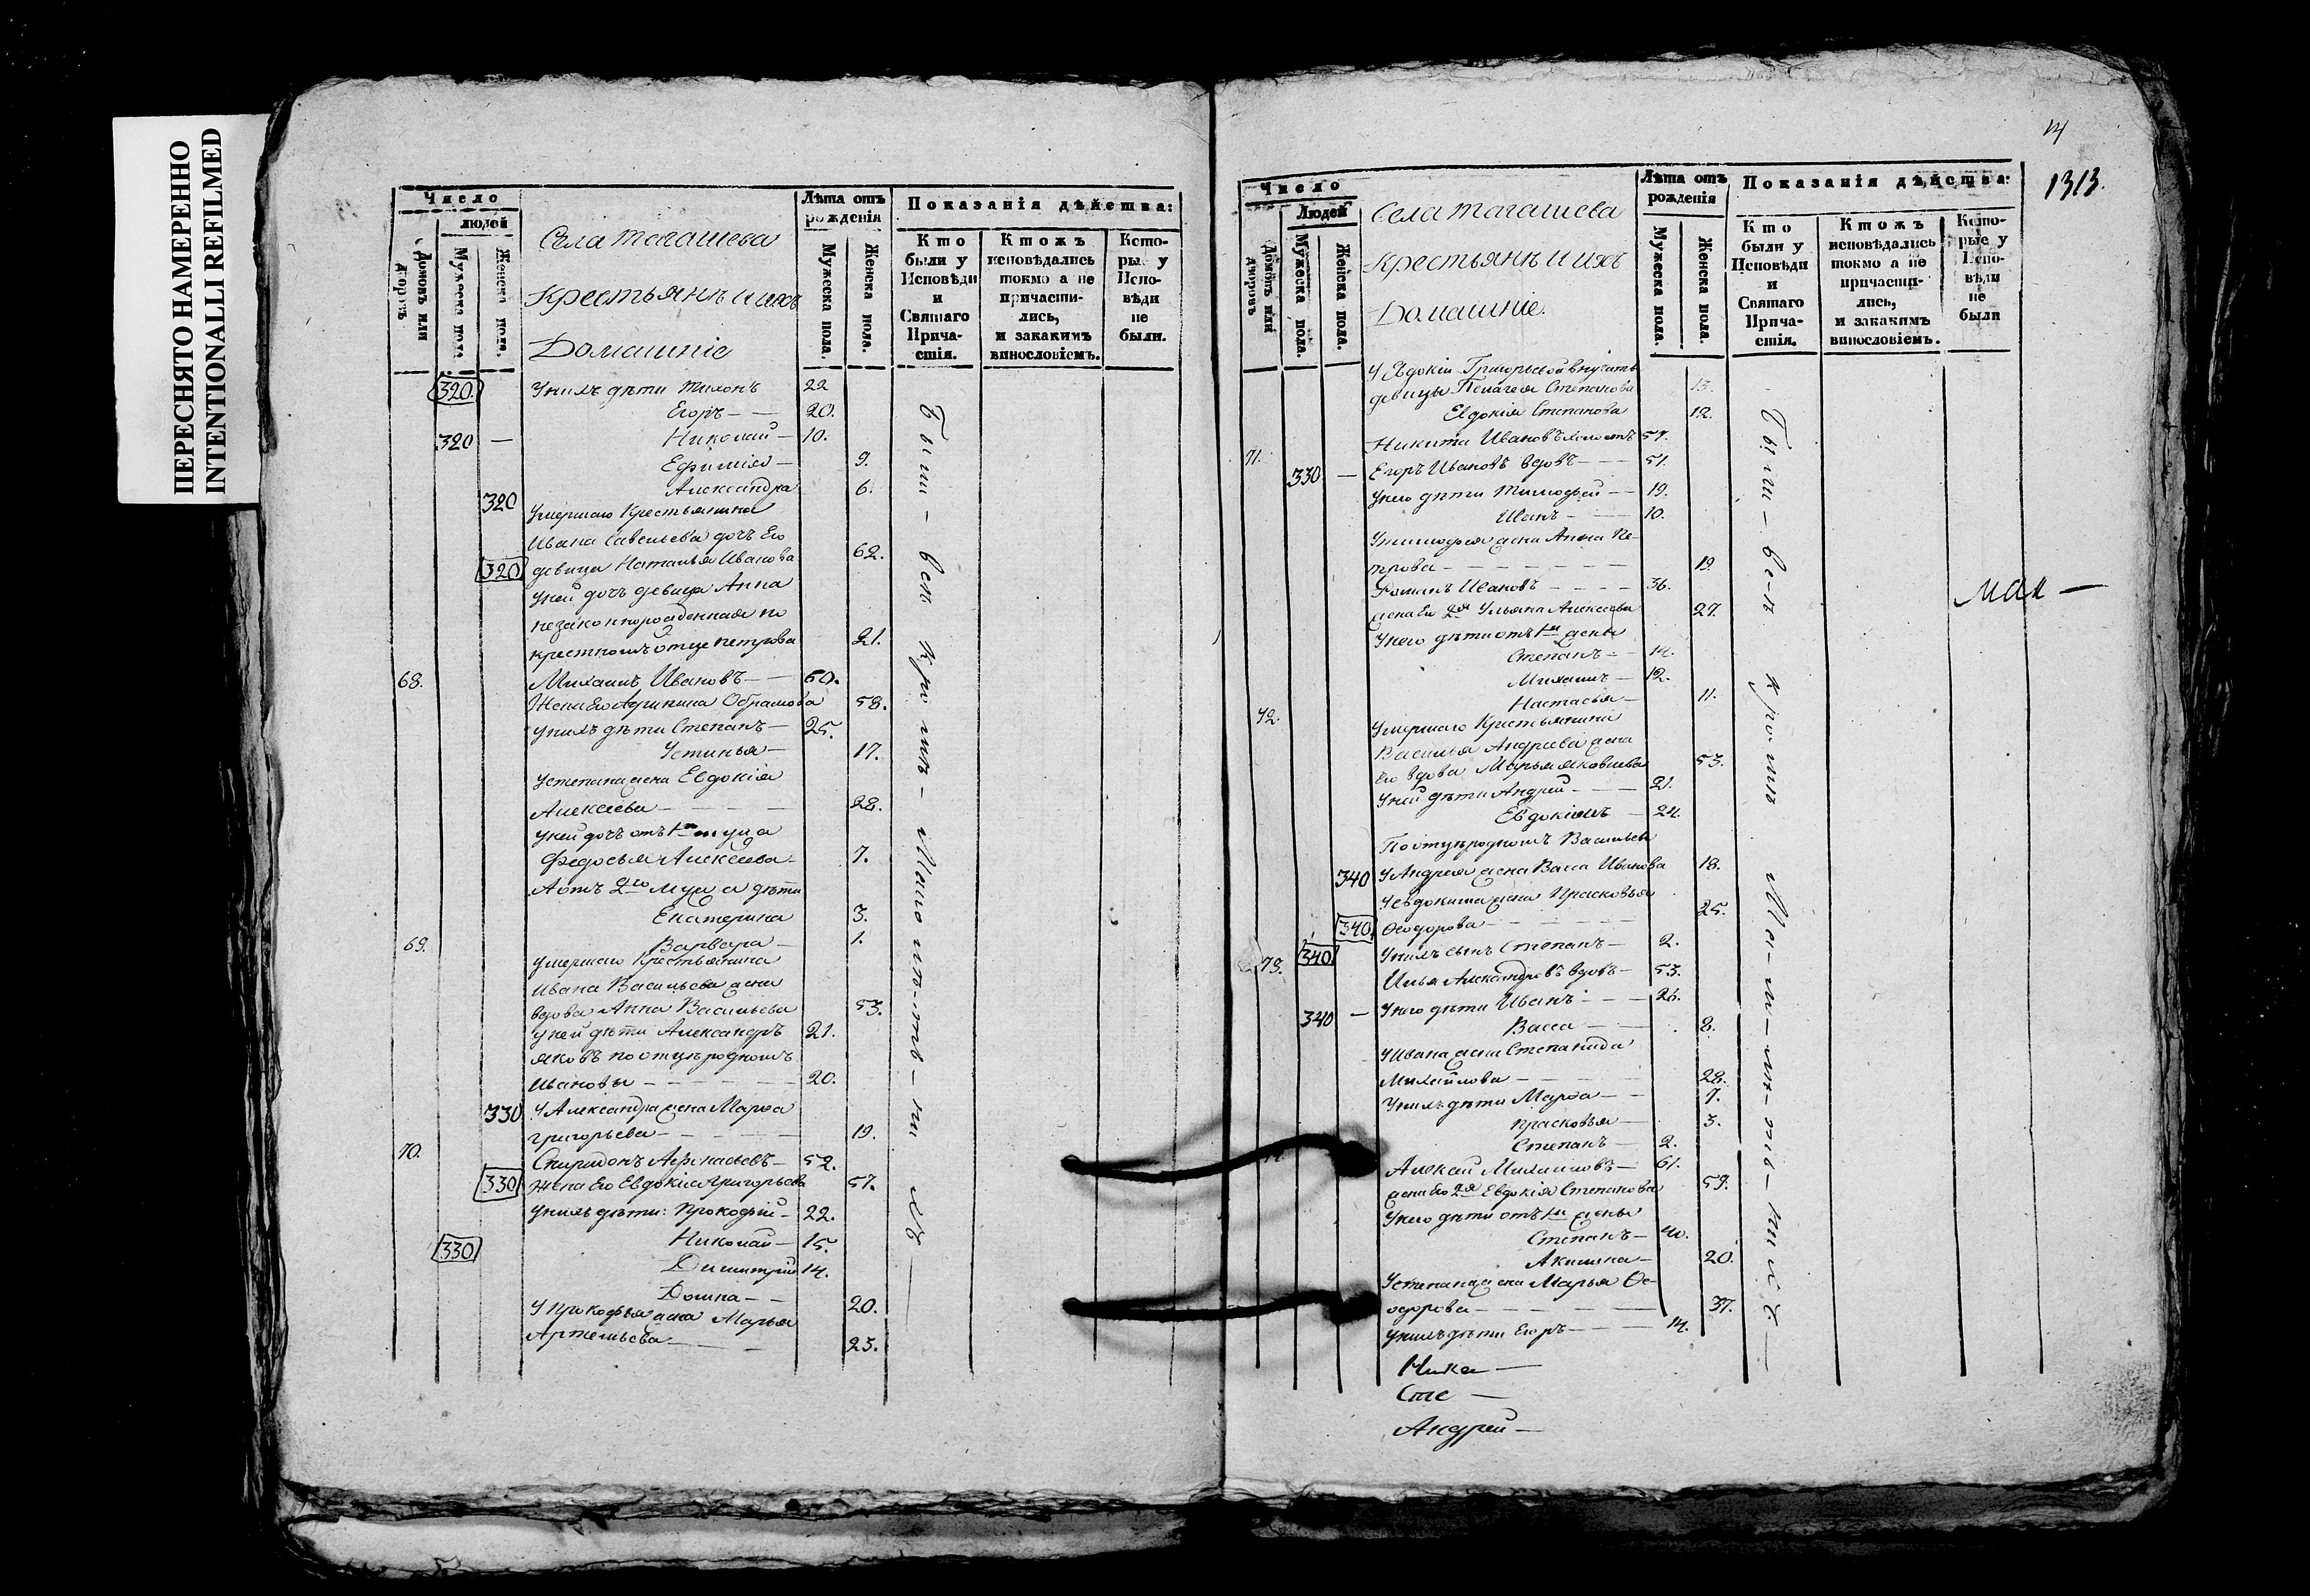 ПЕРЕСНЯТО НАМЕРЕННО
INTENTIONALLI REFILMED
Число
людей
Домовъ или дворовъ
Мужеска пола.
Женска пола.
Села Тогашева
Крестьянъ и ихъ
Домашніе
Лѣта отъ рожденія
Мужеска пола.
Женска пола.
Показанія дѣйства:
Кто были у Исповѣди и Святаго Причастія.
Ктожъ исповѣдались токмо а не причастились, и закакимъ винословіемъ.
Которые у Исповѣди не были.
320. Унихъ дѣти Тихонъ 22
Егоръ — — 20.
320 — Николай — 10.
Ефимія — 9.
Александра 6.
320
Умершаго Крестьянина
Ивана Савельева дочь Его
320 девица Наталья Иванова 62.
Уней дочь девица Анна
незаконнорожденная по
крестномъ отце Петрова 21.
68. Михаилъ Ивановъ — — 60.
Жена Его Агрипина Обрамова 58.
Унихъ дѣти Степанъ — 25.
Устинья — 17.
Устепана жена Евдокія
Алексеева — — — 28.
Уней дочь отъ 1го мужа
Федосья Алексеева 7.
А отъ 2го мужа дѣти
Екатерина 3.
69. Варвара — 1.
Умершаго Крестьянина
Ивана Васильева жена
вдова Анна Васильева 53.
Уней дѣти Александръ 21.
Яковъ по отцѣ родномъ
Ивановы — — — 20.
330 У Александра жена Марѳа
Григорьева — — — 19.
70. Спиридонъ Афонасьевъ — 52.
330 Жена Его Евдокиа Григорьева 57.
Унихъ дѣти: Прокофій — 22.
Николай — 15.
330
Димитрий 14.
Домна — — 20.
У Прокофья жена Марья
Артемьева — — 23.
Были всѣ кромѣ Малолѣтнихъ
14
1313.
Число
Людей
Домовъ или дворовъ
Мужеска пола.
Женска пола.
Села Тогашева
Крестьянъ и ихъ
Домашніе.
Лѣта отъ рожденія
Мужеска пола.
Женска пола.
Показанія дѣйства:
Кто были у Исповѣди и Святаго Причастія.
Ктожъ исповѣдались токмо а не причастились, и закакимъ винословіемъ.
Которые у Исповѣди не были
У Евдокіи Григорьевой внучаты
девицы Пелагея Степанова 13.
Евдокія Степанова 12.
71. Никита Ивановъ холостъ 57.
330 — Егоръ Ивановъ вдовъ — — 51.
Унего дѣти Тимофей — — 19.
Иванъ — — 10.
Утимофея жена Анна Пе-
трова — — — — 19
Фотинъ Ивановъ — — — 36.
жена Его 2я Ульяна Алексеева 27.
Унего дѣти отъ 1й жены
Степанъ — — 14.
Михаилъ — 12.
Настасья — 11.
72. Умершаго Крестьянина
Василья Андреева жена
Его вдова Марья Яковлева 53.
Уней дѣти Андрей — — 21.
Евдокимъ — 24.
По отцѣ родномъ Васильевы
340 У Андрея жена Васса Иванова 18.
Уевдокима жена Прасковья
340 Ѳеодорова — — — 25.
340 Унихъ сынъ Степанъ — 2.
73. Илья Александровъ вдовъ — 53.
Унего дѣти Иванъ — — 26.
340 — Васса — — 8.
У Ивана жена Степанида
Михайлова — — — 28.
Унихъ дѣти Марѳа — — 7.
Прасковья — 3.
Степанъ — 2.
Алексѣй Михайловъ — 61.
жена Его 2я Евдокія Степанова 59.
Унего дѣти отъ 1й жены
Степанъ — 40.
Акилина — 20.
Устепана жена Марья Ѳе-
одорова — — — 37.
Унихъ дѣти Егоръ — — — 14.
Ника —
Сте —
Андрей —
Были всѣ кромѣ Малолѣтнихъ
мал —